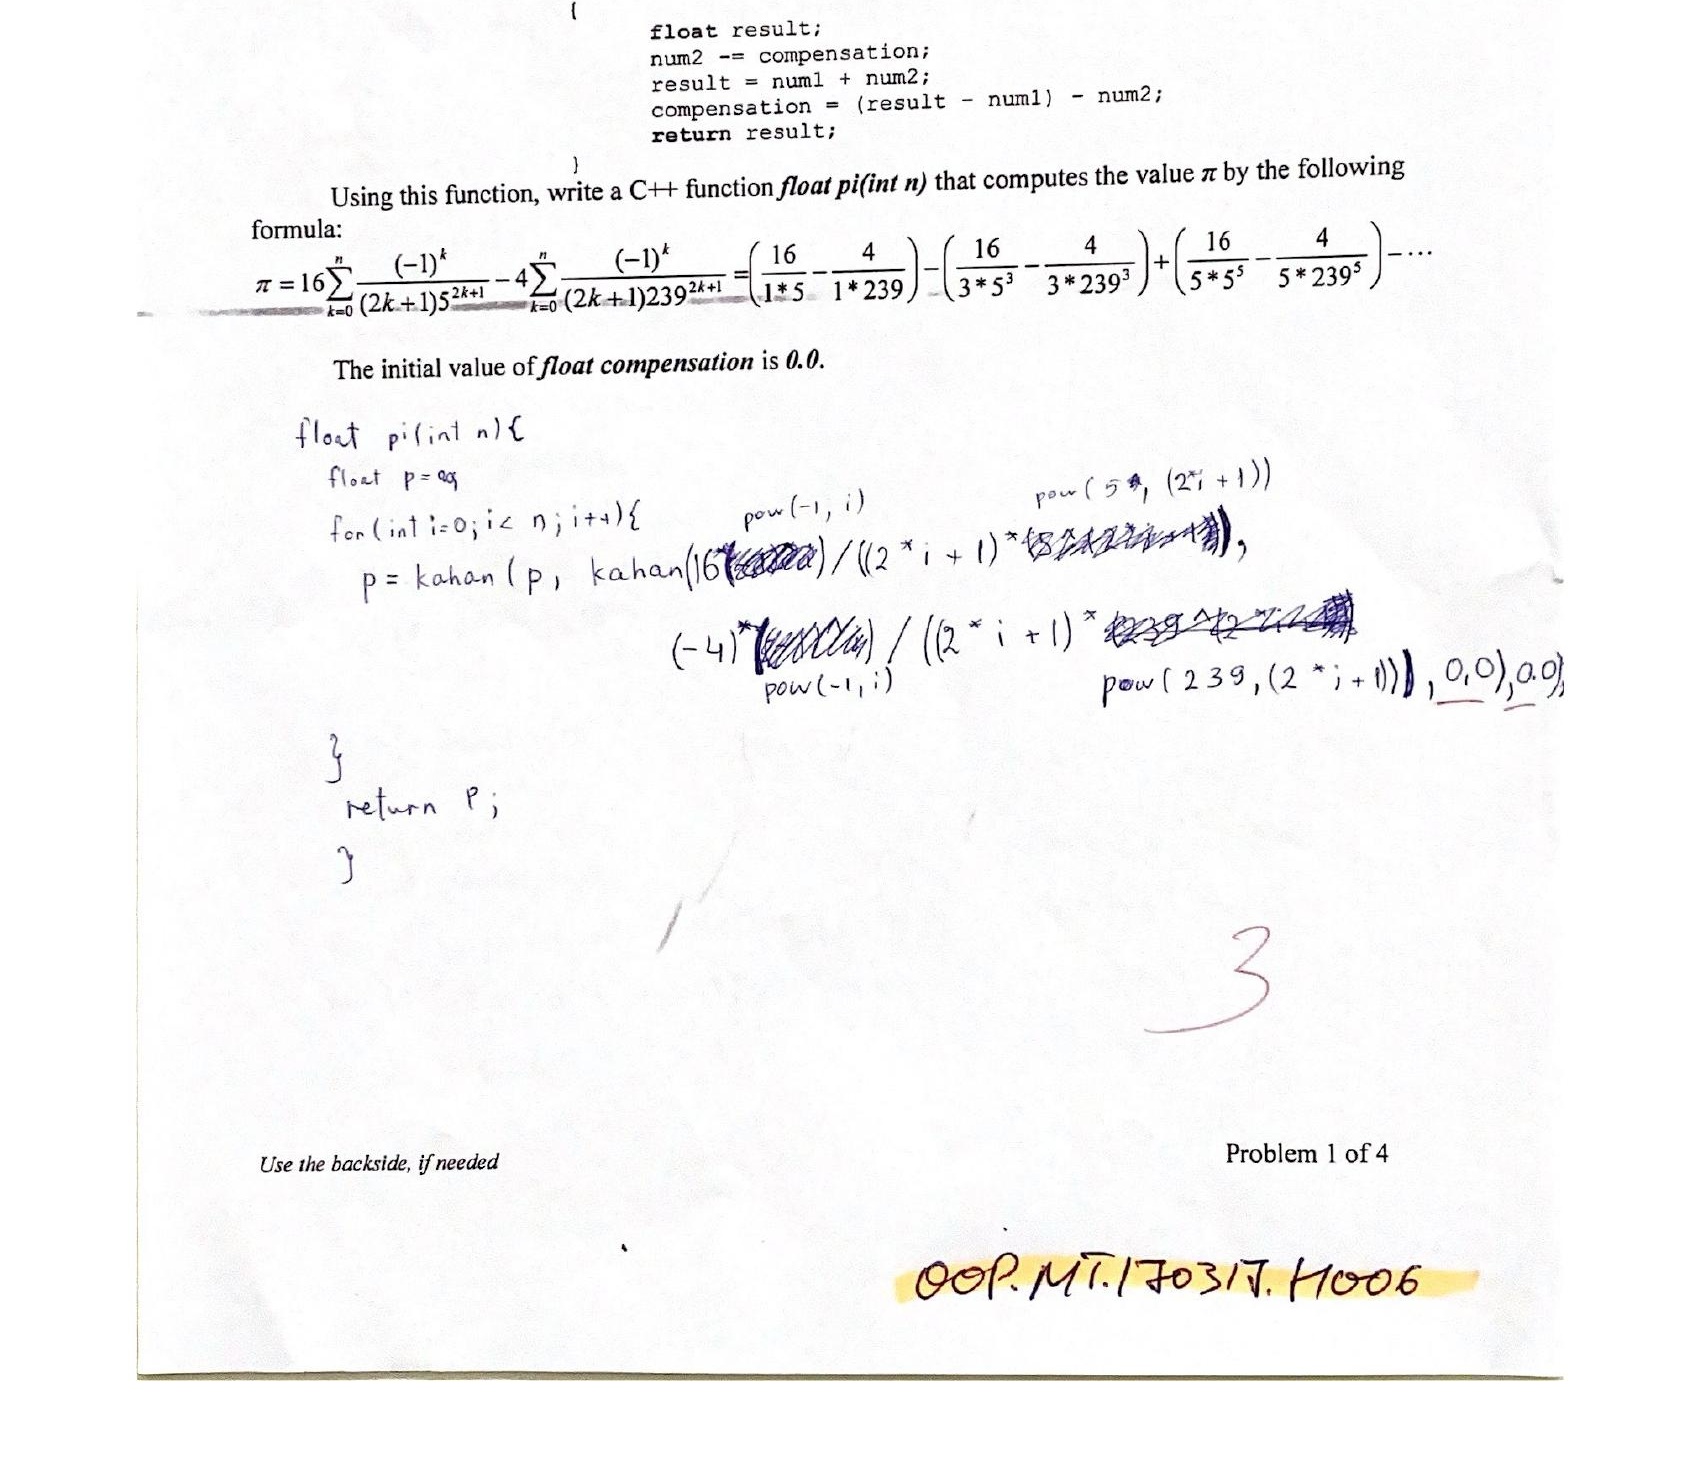 {
float result;
num2 -= compensation;
result = num1 + num2;
compensation = (result - num1) - num2;
return result;
}
Using this function, write a C++ function float pi(int n) that computes the value π by the following
formula:
π = 16 ∑_{k=0}^{n} (-1)^k / (2k+1)5^{2k+1} - 4 ∑_{k=0}^{n} (-1)^k / (2k+1)239^{2k+1} = (16 / 1*5 - 4 / 1*239) - (16 / 3*5^3 - 4 / 3*239^3) + (16 / 5*5^5 - 4 / 5*239^5) - ...
The initial value of float compensation is 0.0.
float pi(int n){
float p=
for(int i=0; i< n; i++){
pow(-1, i) pow(5, (2*i +1))
p = kahan(p, kahan(16 )/((2*i + 1)* ),
(-4)* / ((2*i +1)*
pow(-1, i) pow(239,(2*i+1))), 0,0), 0.0);
}
return p;
}
3
Use the backside, if needed
Problem 1 of 4
OOP.MT.170317.H006